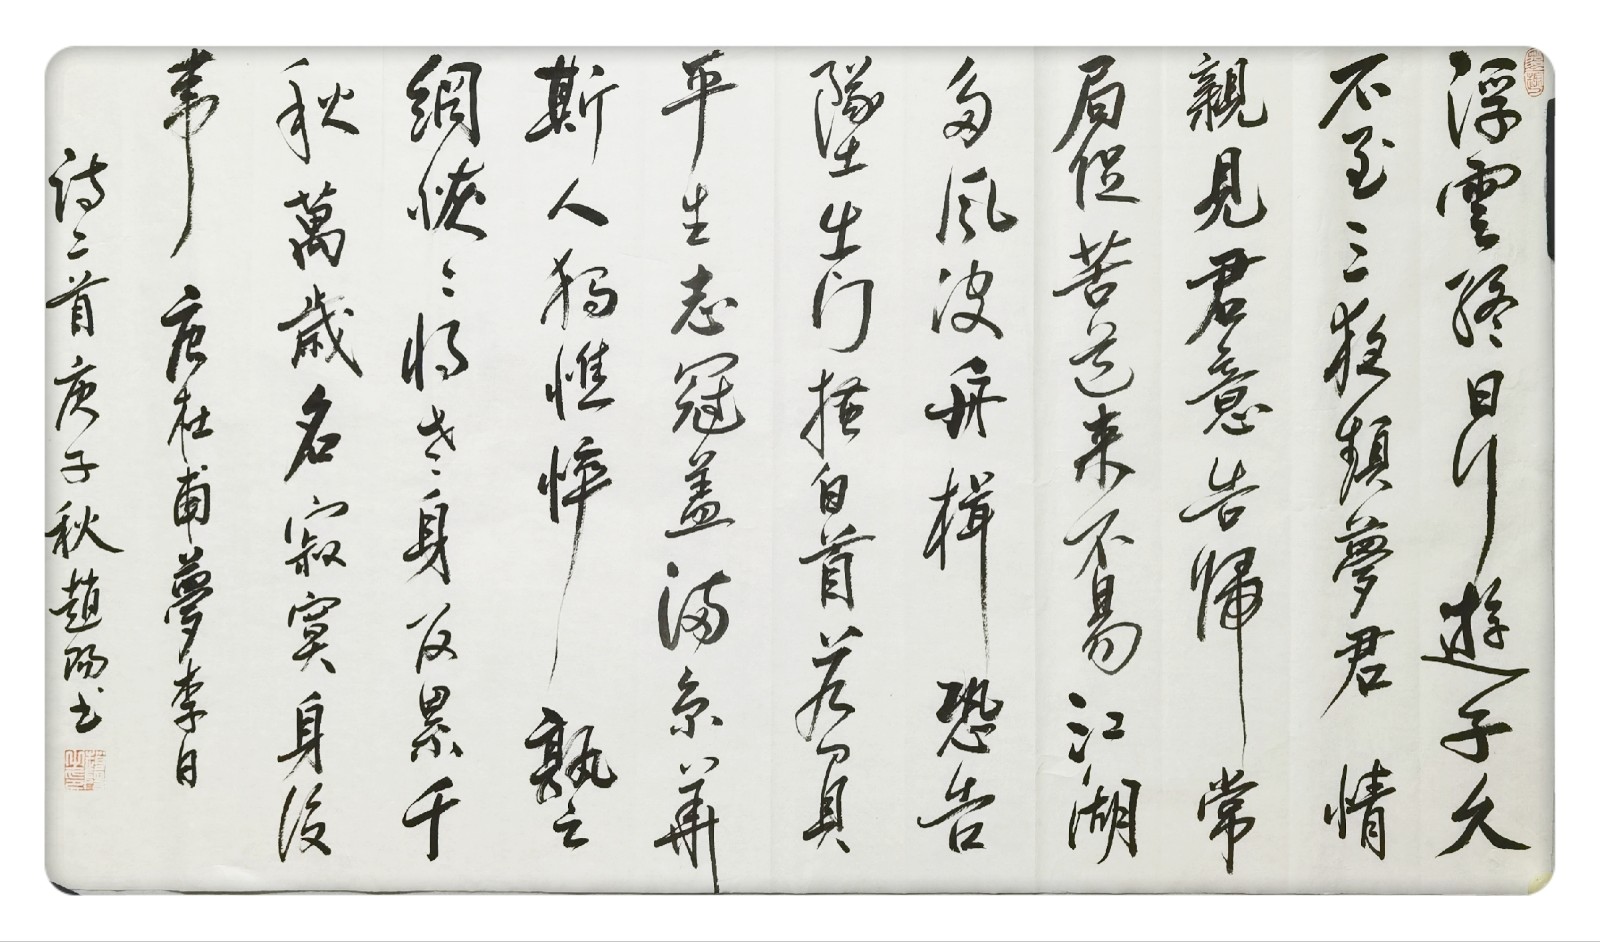 浮雲終日行遊子久
不至三夜頻夢君情
親見君意告歸常
局促苦道来不易江湖
多風波舟楫恐失
墜出门搔白首若負
平生志冠盖滿京華
斯人獨憔悴孰云
網恢〻將老身反累千
秋萬歲名寂寞身後
事 唐杜甫夢李白
诗二首庚子秋趙陽书